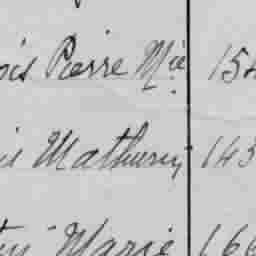 ois Pierre Mie 154
is Mathurin 143
Marie 166